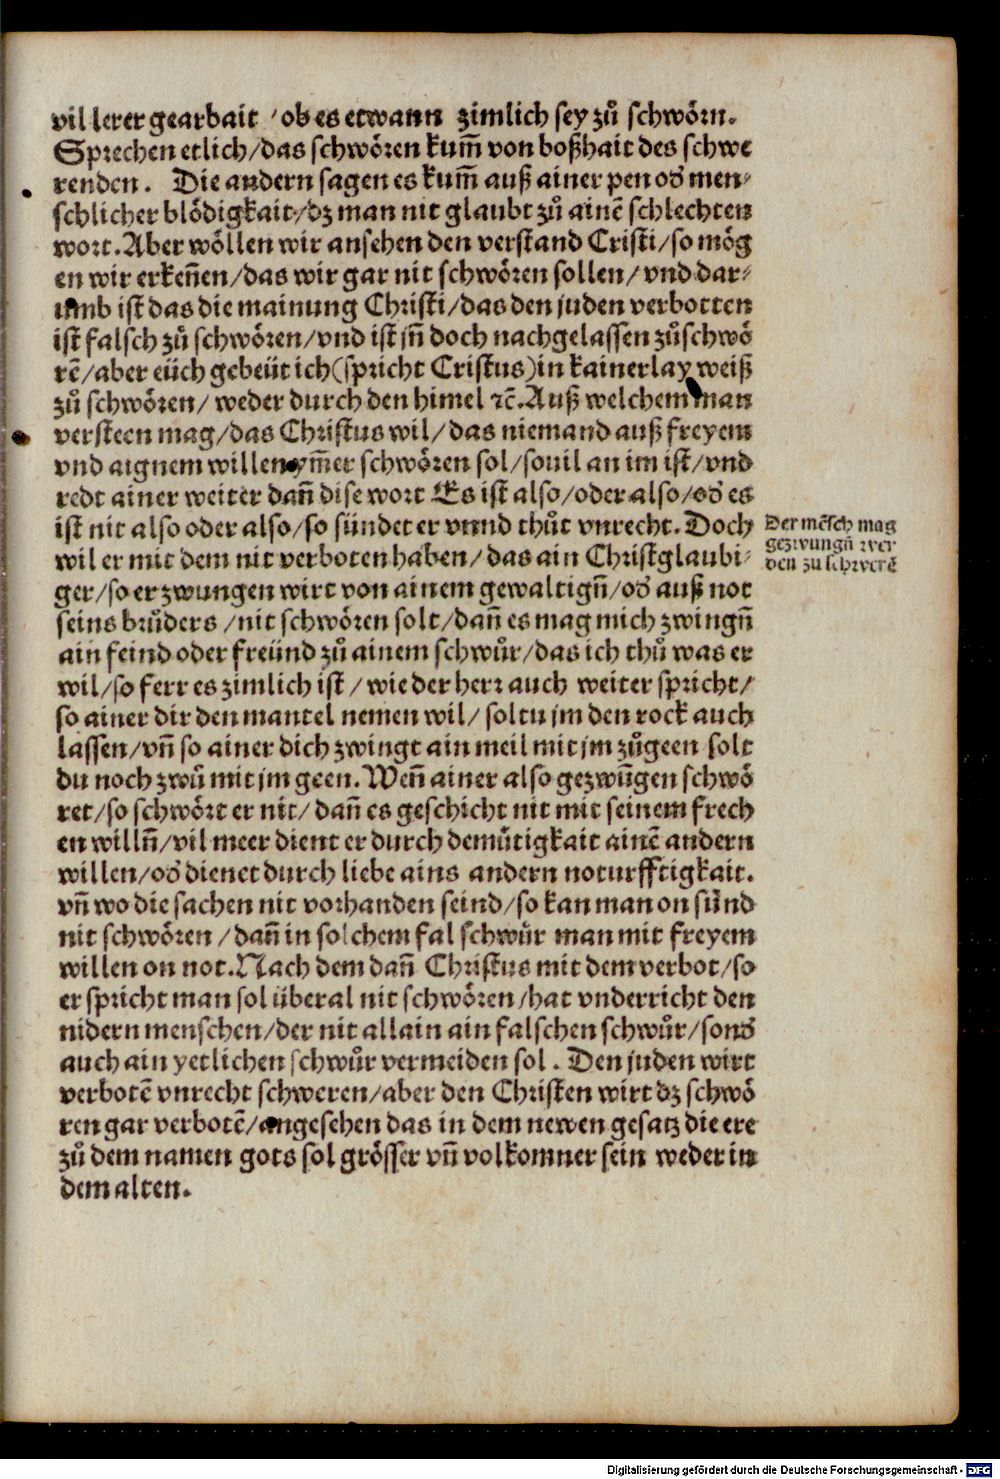 vil lerer gearbait / ob es etwann zimlich sey zů schwoͤrn.
Sprechen etlich/das schwoͤren kum̄ von boßhait des schwe
renden. Die andern sagen es kum̄ auß ainer pen od̕ men⸗
schlicher bloͤdigkait/dz man nit glaubt zů ainē schlechten
wort. Aber woͤllen wir ansehen den verstand Cristi/so moͤg
en wir erkeñen/das wir gar nit schwoͤren sollen/vnd dar⸗
umb ist das die mainung Christi/das den juden verbotten
ist falsch zů schwoͤren/vnd ist jñ doch nachgelassen zůschwoͤ
rē/aber eüch gebeüt ich(spricht Cristus)in kainerlay weiß
zů schwoͤren/ weder durch den himel ꝛc̄. Auß welchem man
versteen mag/das Christus wil/das niemand auß freyem
vnd aignem willen ym̄er schwoͤren sol/souil an im ist/vnd
redt ainer weiter dañ dise wort Es ist also/oder also/od̕ es
ist nit also oder also/so sündet er vnnd thůt vnrecht. Doch
wil er mit dem nit verboten haben/das ain Christglaubi⸗
ger/so er zwungen wirt von ainem gewaltigñ/od̕ auß not
seins brůders /nit schwoͤren solt/dañ es mag mich zwingñ
ain feind oder freünd zů ainem schwůr/das ich thů was er
wil/so ferr es zimlich ist / wie der herr auch weiter spricht/
so ainer dir den mantel nemen wil/ soltu jm den rock auch
lassen/vñ so ainer dich zwingt ain meil mit jm zůgeen solt
du noch zwů mit jm geen. Weñ ainer also gezwũgen schwoͤ
ret/so schwoͤrt er nit/ dañ es geschicht nit mit seinem frech
en willñ/vil meer dient er durch demůtigkait ainē andern
willen/od̕ dienet durch liebe ains andern noturfftigkait.
vñ wo die sachen nit vorhanden seind/so kan man on sünd
nit schwoͤren /dañ in solchem fal schwůr man mit freyem
willen on not. Nach dem dañ Christus mit dem verbot/so
er spricht man sol überal nit schwoͤren/hat vnderricht den
nidern menschen/der nit allain ain falschen schwůr/sond̕
auch ain yetlichen schwůr vermeiden sol. Den juden wirt
verbotē vnrecht schweren/aber den Christen wirt dz schwoͤ
ren gar verbotē/angesehen das in dem newen gesatz die ere
zů dem namen gots sol groͤsser vñ volkomner sein weder in
dem alten.
Der mēsch mag
gezwungñ wer
den zu schwerē
Digitalisierung gefördert durch die Deutsche Forschungsgemeinschaft - DFG